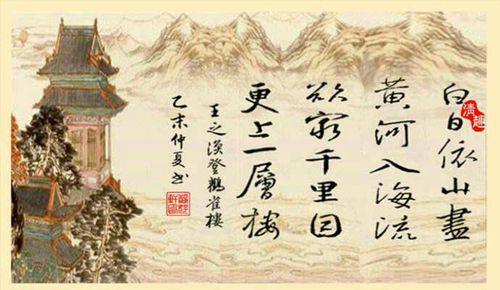 白日依山盡
黃河入海流
欲窮千里目
更上一層樓
王之渙登鸛雀樓
乙未仲夏書
清趣